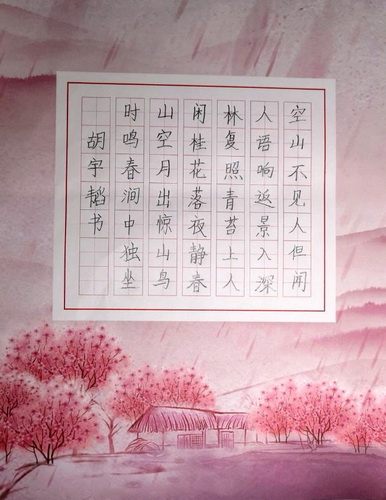 空山不见人但闻
人语响返景入深
林复照青苔上人
闲桂花落夜静春
山空月出惊山鸟
时鸣春涧中独坐
胡宇韬书